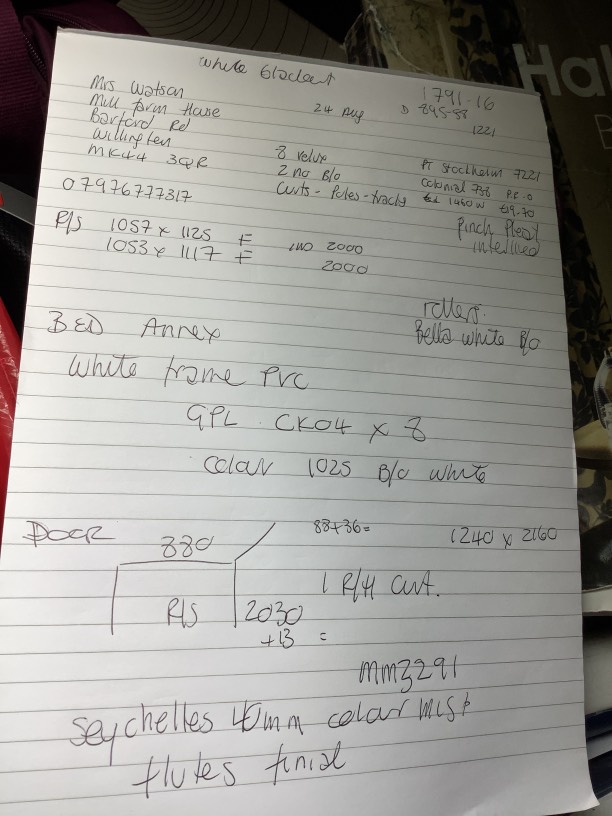 White blackout
1791.16
Mrs Watson
24 Aug
D 895.58
Mill farm House
1221
Barford Rd
Willington
8 velux
MK44 3QR
2 no B/o
PT Stockholm 7221
Curts - Poles - tracks
Colonial 738 P.R.O
07976777317
1460 W £19.70
Pinch Pleat
interlined
R/S 1057 x 1125 F
uno 2000
1053 x 1117 F
2000
rollers.
BED Annex
Bella white B/o
White frame PVC
GPL CK04 x 8
Colour 1025 B/o white
DOOR
880
88+36=
1240 x 2160
1 R/H Curt.
R/S
2030
+13 =
MM3291
Seychelles 40mm colour mist
flutes finial
Ha